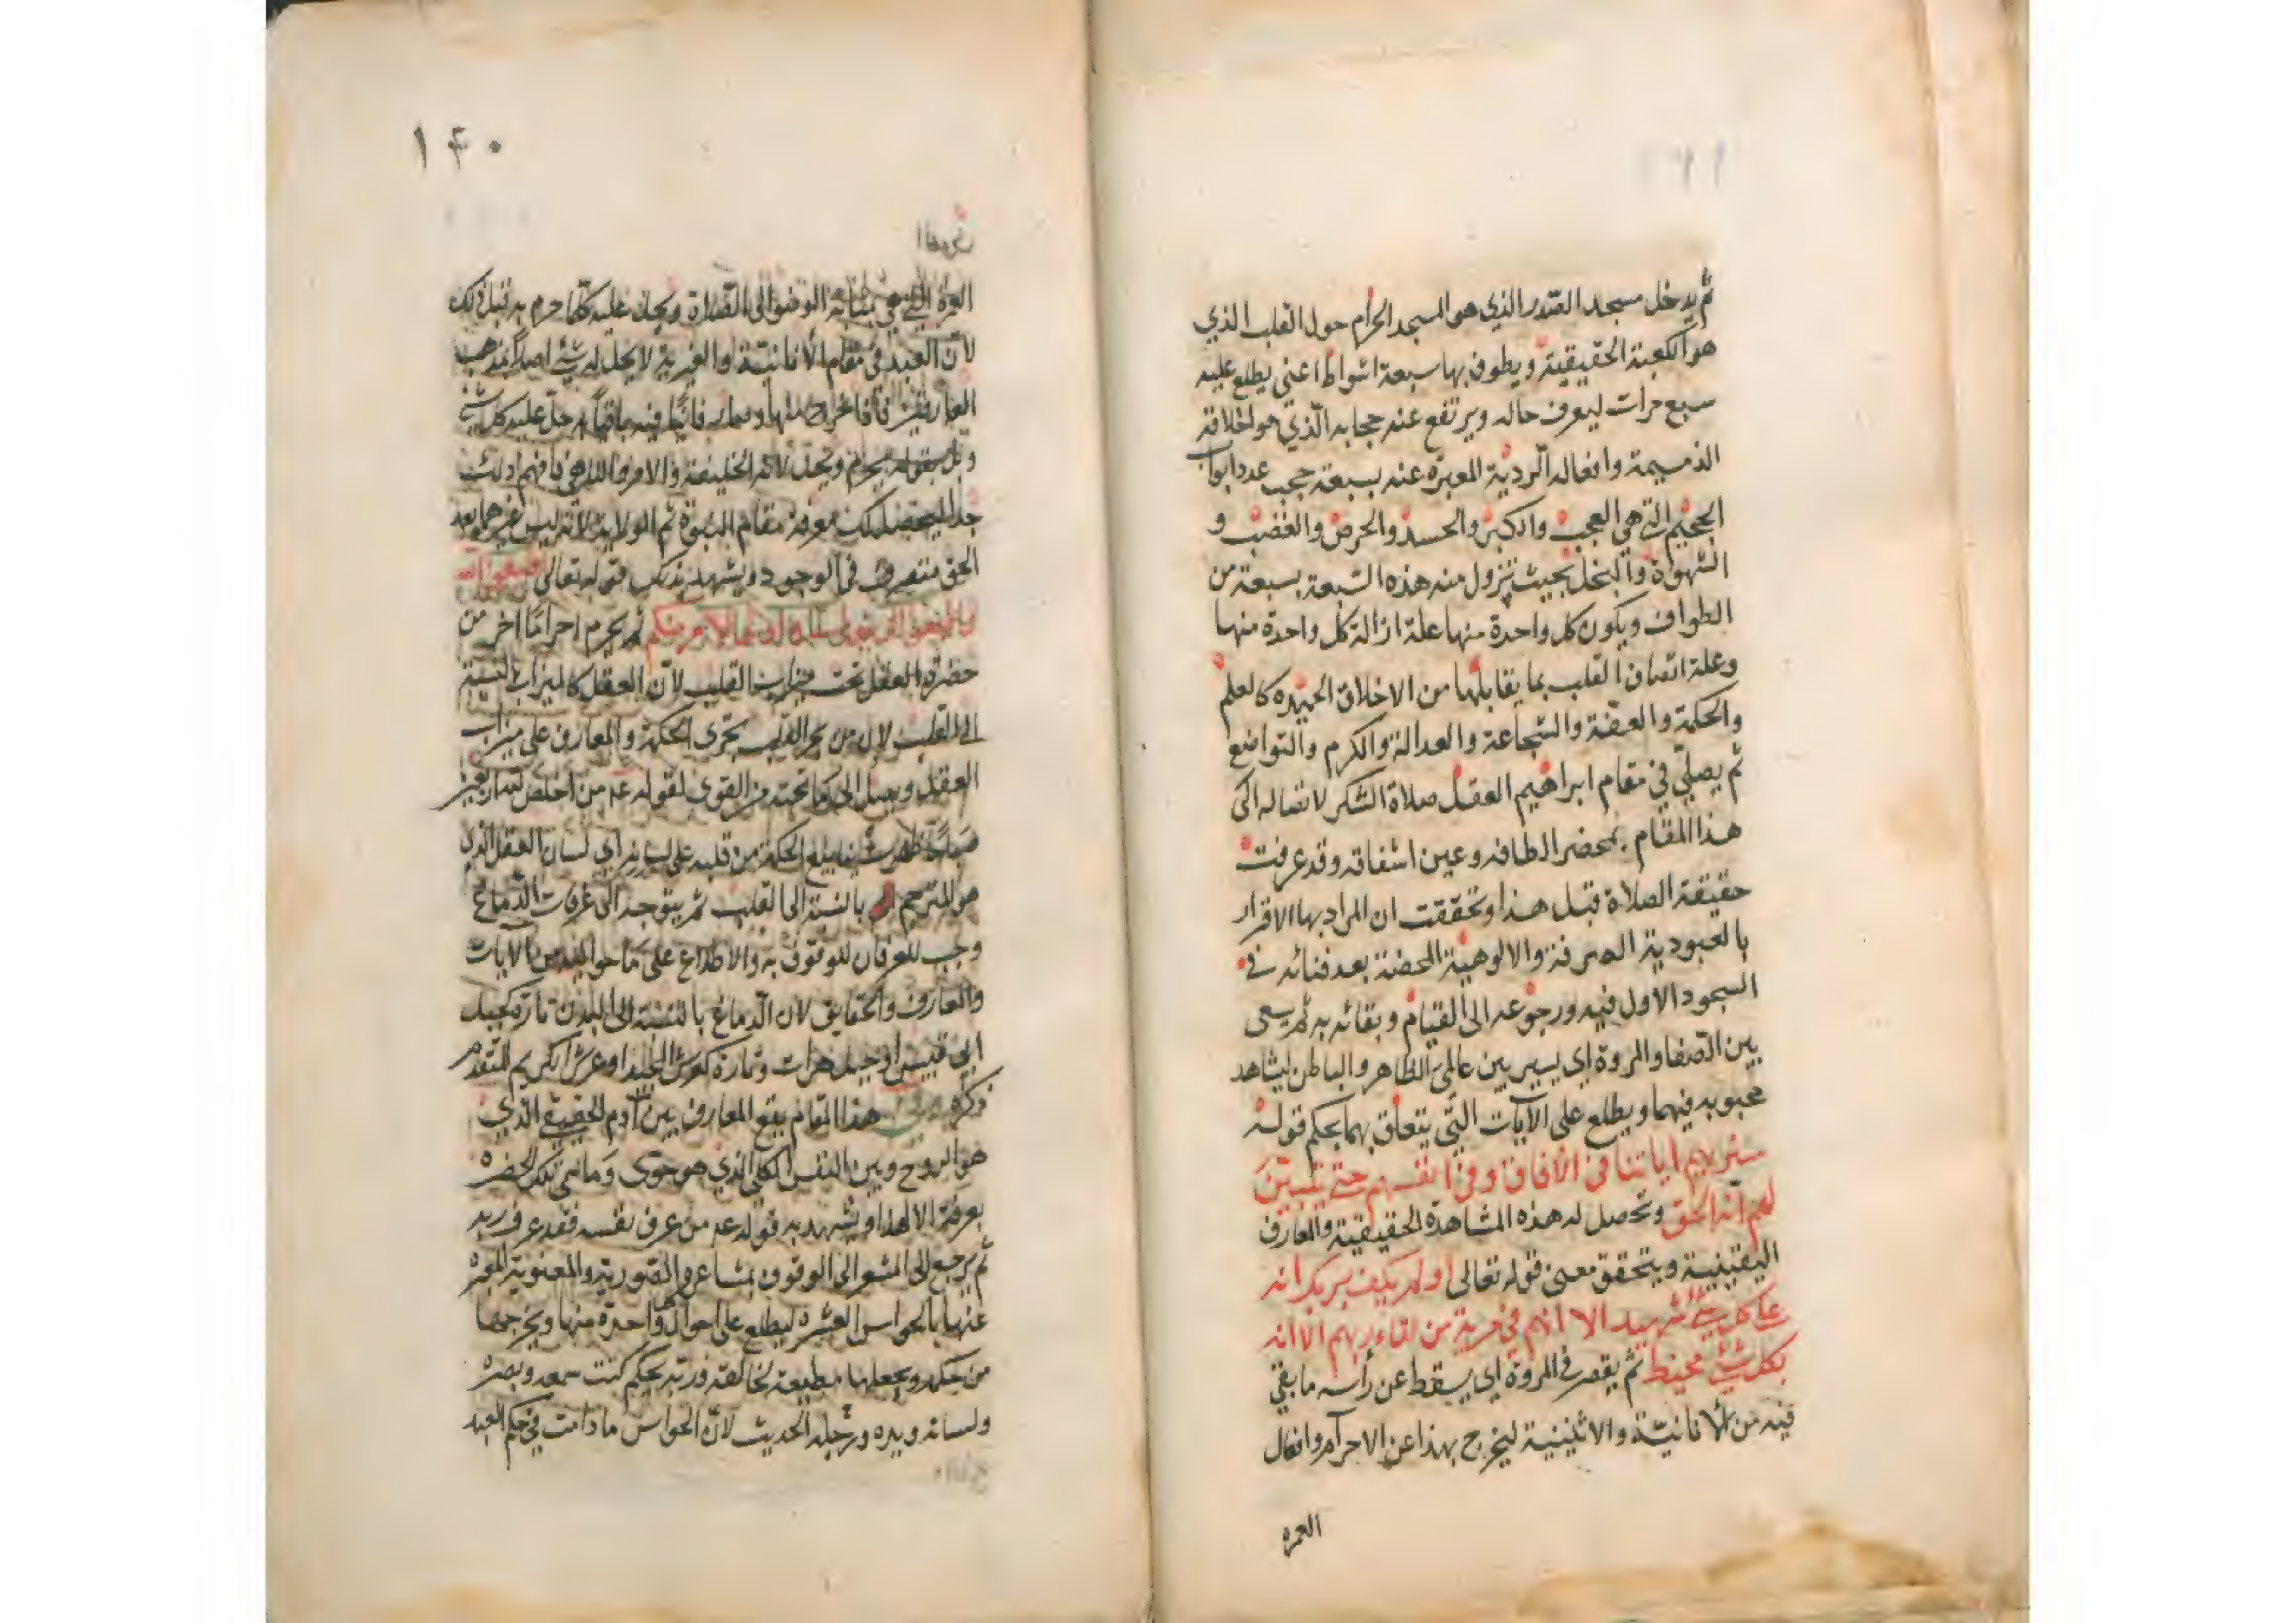 ثم يدخل مسجد الصدر الذي هو المسجد الحرام حول القلب الذي
هو الكعبة الحقيقية ويطوف بها سبعة اشواط اعني يطلع عليه
سبع مرات ليعرف حاله ويرتفع عنه حجابه الذي هو اخلاقه
الذميمة وافعاله الردية المعبرة عنه بسبعة حجب عدد ابواب
الجحيم التي هي العجب والكبر والحسد والحرص والغضب و
الشهوة والبخل بحيث تزول منه هذه السبعة بسبعة من
الطواف ويكون كل واحدة منها علة ازالة كل واحدة منها
وعلة اتصاف القلب بما يقابلها من الاخلاق الحميده كالعلم
والحكمة والعفة والشجاعة والعدالة والكرم والتواضع
ثم يصلي في مقام ابراهيم العقل صلاة الشكر لاتصاله الى
هذا المقام بمحضر الطافه وعين اشفاقه وقد عرفت
حقيقة الصلاة قبل هذا وتحققت ان المراد بها الاقرار
بالعبودية الصرفة والالوهية المحضة بعد فنائه في
السجود الاول فيه ورجوعه الى القيام وبقائه به ثم يسعى
بين الصفا والمروة اي يسير بين عالمي الظاهر والباطن ليشاهد
محبوبه فيهما ويطلع على الآيات التي يتعلق بهما بحكم قوله
سنريهم اياتنا في الافاق وفي انفسهم حتى يتبين
لهم انه الحق وتحصل له هذه المشاهدة الحقيقية والمعارف
اليقينية ويتحقق معنى قوله تعالى اولم يكف بربك انه
على كل شيء شهيد الا انهم في مرية من لقاء ربهم الا انه
بكل شيء محيط ثم يقصر في المروة اي يسقط عن رأسه ما بقي
فيه من الانانية والاثنينية ليخرج بهذا عن الاحرام وافعال
العمره
١۴٠
العمرة التي هي بمثابة الوضوء الى الصلاة ويحل عليه كلما حرم به قبل ذلك
لان العبد في مقام الانانية او الغيرية لا يحل له شيء اصلا بمذهب
العارفين فاذا خرج منها وصار فانيا فيه باقيا به حل عليه كل شيء
يحرم ويحل لانه الخليفة والامر فافهم ذلك
جدا ليحصل لك معرفة مقام النبوة ثم الولاية لانه ليس غيرهما بعد
الحق متصرف في الوجود ويشهد بذلك قوله تعالى
الامر منكم ثم يحرم احراما اخر من
حضرة العقل تحت ميزاب القلب لان العقل كالميزاب بالنسبة
الى القلب لان من بحر القلب تجري الحكمة والمعارف على ميزاب
العقل ويصل الى ما تحته من القوى لقوله عم من اخلص لله اربعين
صباحا ظهرت ينابيع الحكمة من قلبه على لسانه اي لسان العقل الذي
هو المترجم بالنسبة الى القلب ثم يتوجه الى عرفات الدماغ
وجب للعرفان للوقوف به والاطلاع على ما حواليه من الآيات
والمعارف والحقايق لان الدماغ بالنسبة الى البدن تارة كجبل
ابي قبيس او جبل هرات وتارة كعرش المجيد او عرش الكريم المتقدم
ذكره هذا المقام يقع المعارف بين آدم الحقيقي الذي
هو الروح وبين النفس الكلي الذي هو حوى
من عرف نفسه فقد عرف ربه
ثم يرجع الى المشعر الى الوقوف بمشاعره الصورية والمعنوية المعبرة
عنها بالحواس العشرة ليطلع على احوال واحدة منها ويخرجها
من حكمه ويجعلها مطيعة لخالقه وربه بحكم كنت سمعه وبصره
ولسانه ويده ورجله الحديث لان الحواس ما دامت في حكم العبد